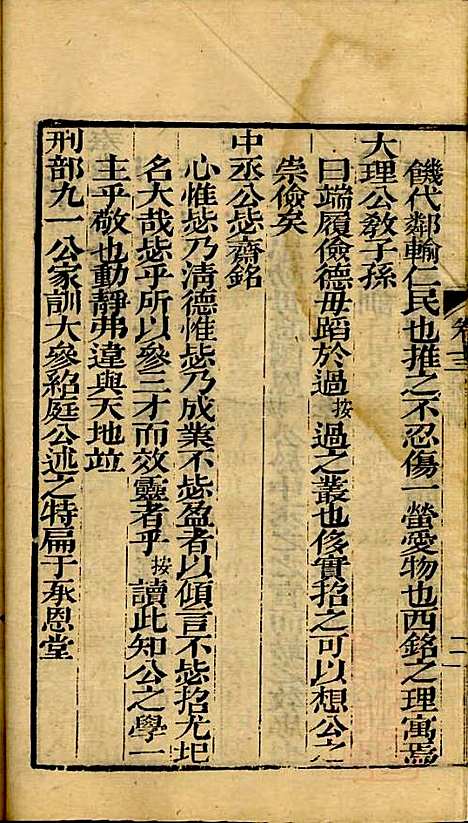 饑代鄰輸仁民也推之不忍傷一螢愛物也西銘之理寓焉
大理公敎子孫
曰端履儉德毋蹈於過按過之叢也侈實招之可以想公之
崇儉矣
中丞公毖齋銘
心惟毖乃清德惟毖乃成業不毖盈者以傾言不毖招尤圯
名大哉毖乎所以參三才而效靈者乎按讀此知公之學一
主乎敬也動靜弗違與天地竝
刑部九一公家訓大參紹庭公述之特扁于承恩堂